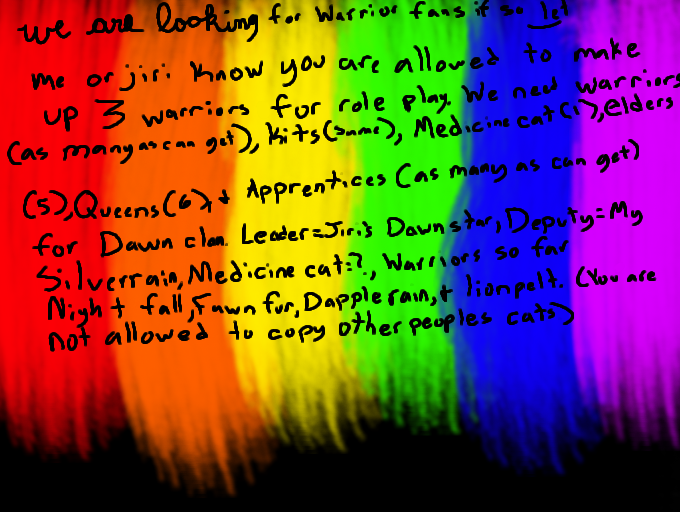 we are looking for warrior fans if so let
me or jiri know you are allowed to make
up 3 warriors for role play. We need warriors
(as many as can get), kits(same), Medicine cat(1), elders
(5), Queens(6), + Apprentices (as many as can get)
for Dawn clan. Leader=Jiri's Dawnstar, Deputy=My
Silverrain, Medicine cat=?, Warriors so far
Night fall, Fawn fur, Dapplerain, + lionpelt. (You are
not allowed to copy other peoples cats)